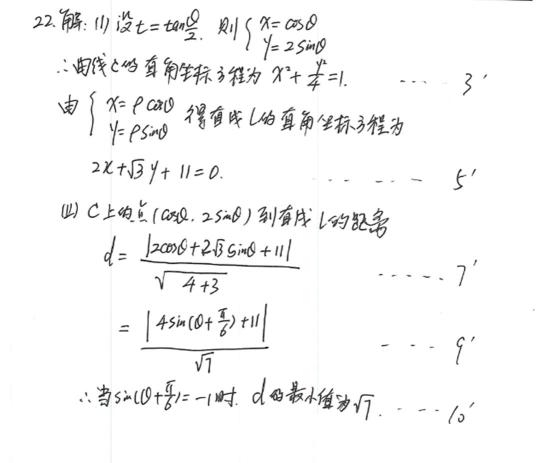 22.解: (1) 设t=tan\frac{θ}{2}. 则 \begin{cases} x=cosθ \\ y=2sinθ \end{cases}
∴曲线C的直角坐标方程为 x²+\frac{y²}{4}=1. ······ 3′
由 \begin{cases} x=ρcosθ \\ y=ρsinθ \end{cases} 得直线l的直角坐标方程为
2x+√3y+11=0. ······ 5′
(Ⅱ) C上的点(cosθ, 2sinθ)到直线l的距离
d=\frac{|2cosθ+2√3sinθ+11|}{\sqrt{4+3}} ····· 7′
=\frac{|4sin(θ+\frac{π}{6})+11|}{√7} ···· 9′
∴当sin(θ+\frac{π}{6})=-1时. d的最小值为√7. ···· 10′